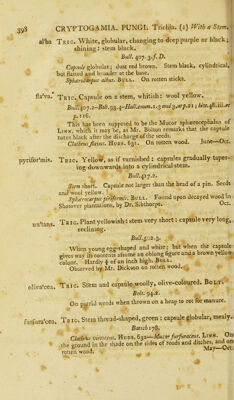 398 CRYPTOGAMIA. FUNGI. Trichia. (2) With a Stem.
al'ba TRIC. White, globular, changing to deep purple or black;
shining: stem black.
Bull. 407.3.f. D.
Capsule globular; dust red brown. Stem black, cylindrical,
but flatted and broader at the base.
Sphærocarpus albus. BULL. On rotten sticks.
fla'va. TRIC. Capsule on a stem, whitish: wool yellow.
This has been supposed to be the Mucor sphærocephalus of
LINN. which it may be, as Mr. Bolton remarks that the capsule
turns black after the discharge of the seeds.
Clathrus flavus. HUDS. 631. On rotten wood. June—Oct.
pyrifor'mis. TRIC. Yellow, as if varnished: capsules gradually taper-
ing downwards into a cylindrical stem.
Bull. 417.2.
Stem short. Capsule not larger than the head of a pin. Seeds
and wool yellow.
Sphærocarpus piriformis. BULL. Found upon decayed wood in
Shotover plantations, by Dr. Sibthorpe. Oct.
nu'tans. TRIC. Plant yellowish: stem very short: capsule very long,
reclining.
Bull. 502.3.
When young egg-shaped and white; but when the capsule
gives way its contents assume an oblong figure and a brown yellow
colour. Hardly ⅛ of an inch high. BULL.
Observed by Mr. Dickson on rotten wood.
oliva'cea. TRIC. Stem and capsule woolly, olive-coloured. BOLT.
Bolt. 94.2.
On putrid weeds when thrown on a heap to rot for manure.
furfura'cea. TRIC. Stem thread-shaped, green: capsule globular, mealy.
Batsch 178.
Clathrus virescens. HUDS. 632—Mucor furfuraceus. LINN. On
the ground in the shade on the sides of roads and ditches, and on
rotten wood. May—Oct.